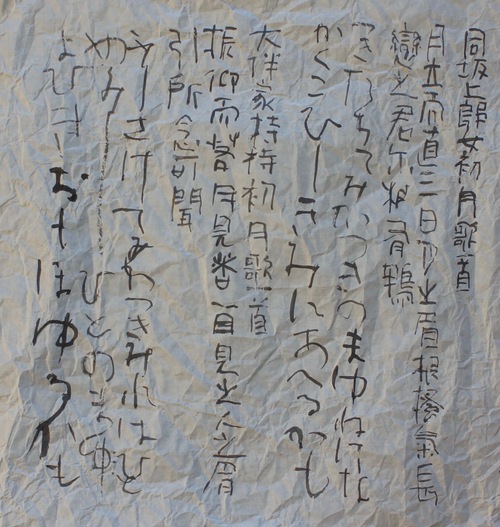 同坂上郎女初月歌一首
月立而直三日月之眉根掻氣長
戀之君尓相有鴨
つきたちてみかつきのまゆねかきけな
かくこひしきみにあへるかも
大伴家持初月歌一首
振仰而若月見者一目見之人之眉
引所念可聞
ふりさけてみかつきみれはひと
めみし ひとのまゆ
よひき おもほゆるかも